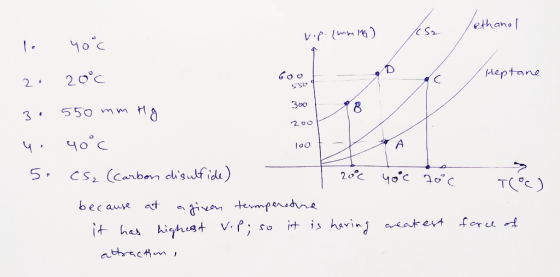 1. 40°C
2. 20°C
3. 550 mm Hg
4. 40°C
5. CS2 (Carbon disulfide)
because at a given termperedure
it has highest V.P; so it is hering weatest force of
attraction,
V.P. (mm Hg)
CS2
ethanol
Heptane
600
550
300
200
100
D
C
B
A
20°C 40°C 70°C T(°C)